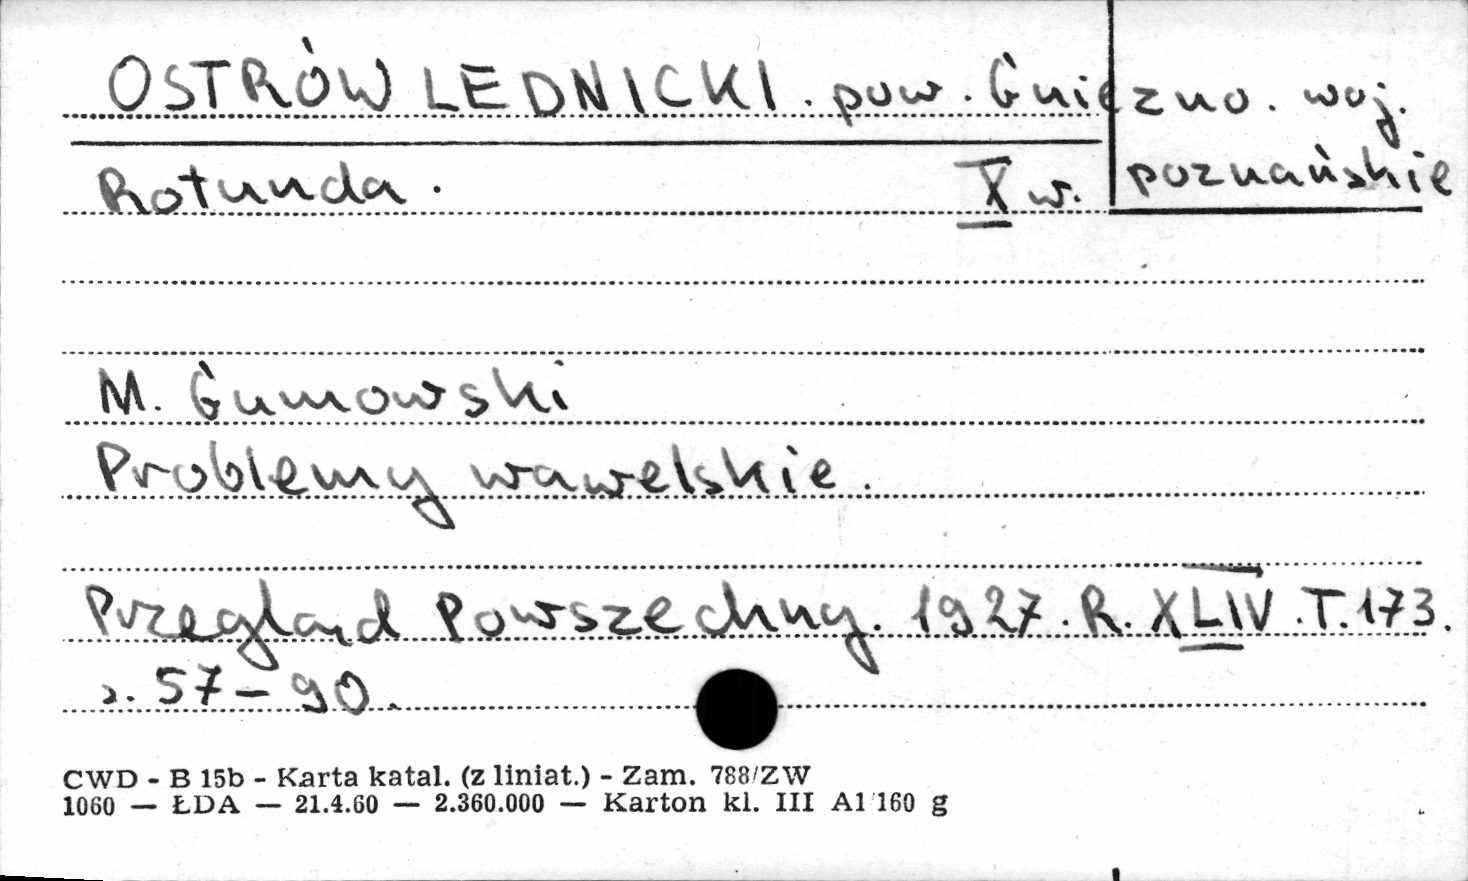 OSTRÓW LEDNICKI. pow. Gniezno. woj.
poznańskie
Rotunda. X w.
M. Gumowski
Problemy wawelskie.
Przegląd Powszechny. 1927. R. XLIV. T. 173.
s. 57-90.
CWD - B 15b - Karta katal. (z liniat.) - Zam. 788/ZW
1060 — ŁDA — 21.4.60 — 2.360.000 — Karton kl. III A1 160 g